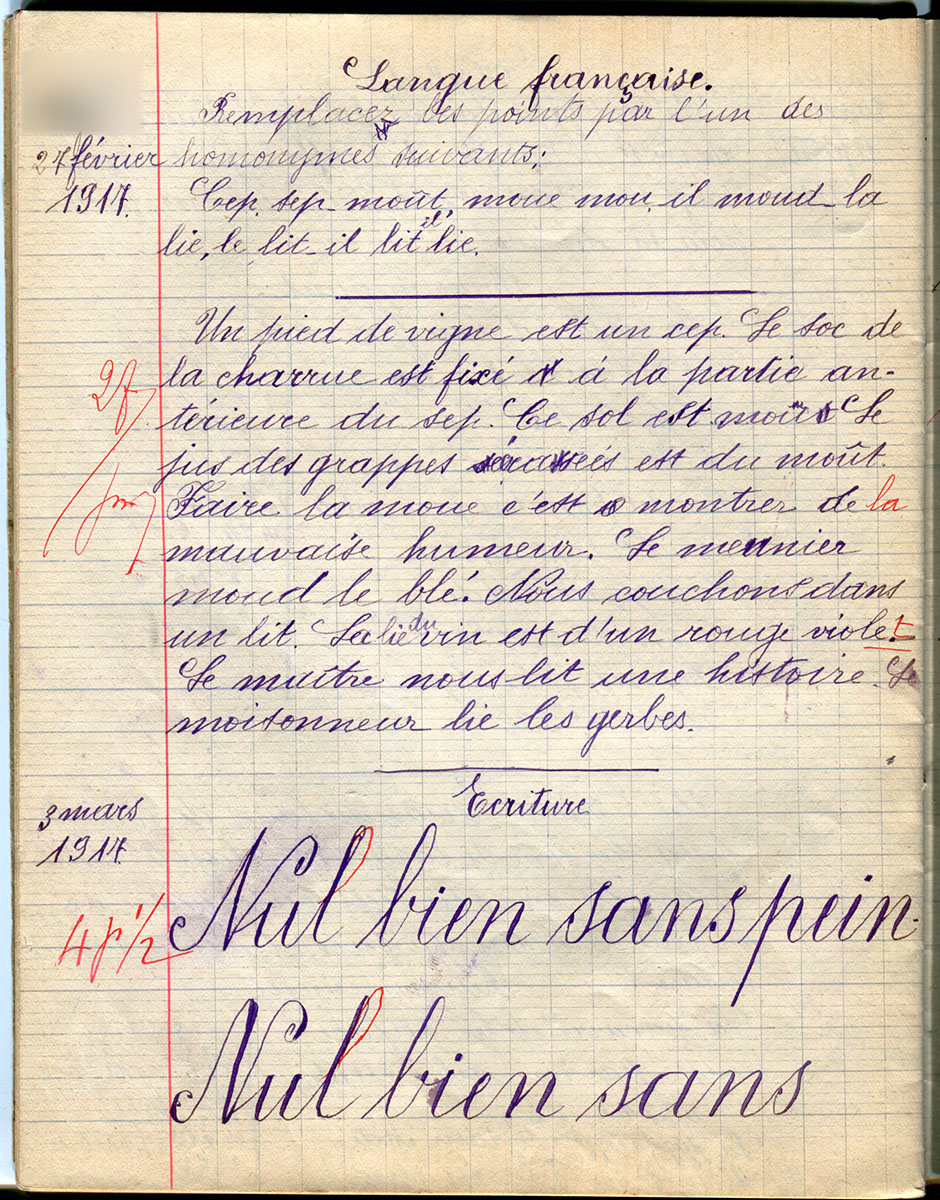 Langue française.
Remplacez les points par l'un des
27 février homonymes suivants:
1917. Cep, sep moût, moue mou, il moud la
lie, le lit il lit il lie.
Un pied de vigne est un cep. Le soc de
la charrue est fixé à la partie an-
térieure du sep. Ce sol est mou Le
jus des grappes écrasées est du moût.
Faire la moue c'est montrer de la
mauvaise humeur. Le meunier
moud le blé. Nous couchons dans
un lit. La lie du vin est d'un rouge violet
Le maître nous lit une histoire. Le
moisonneur lie les gerbes.
Ecriture
3 mars
1917.
Nul bien sans pein-
4 1/2
Nul bien sans